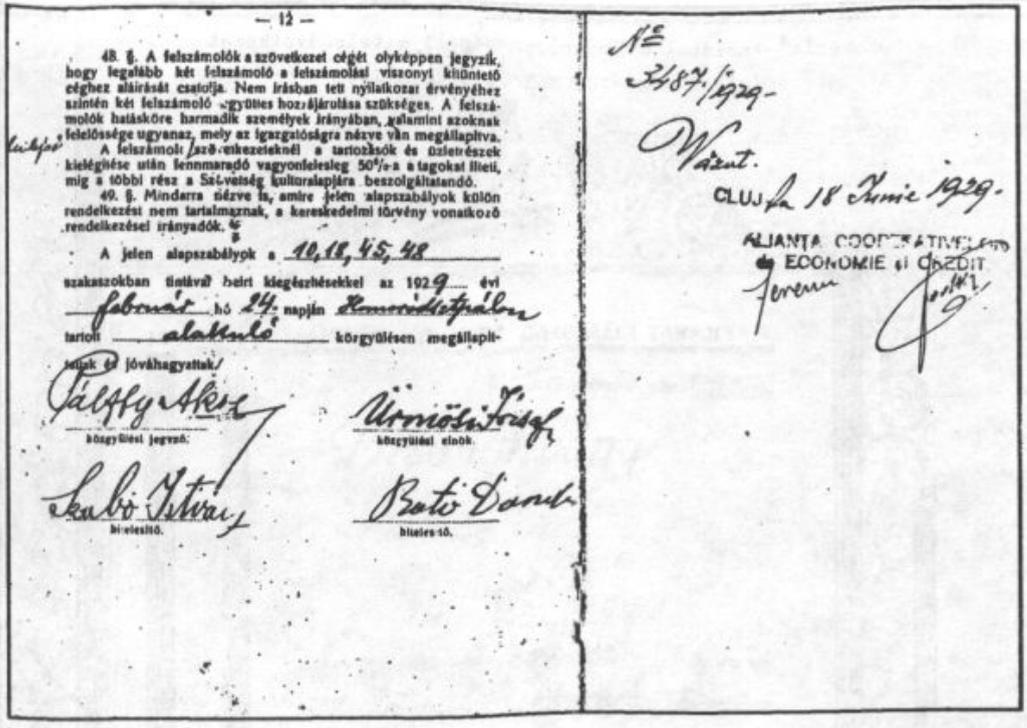 — 12 —
48. §. A felszámolók a szövetkezet cégét olyképpen jegyzik,
hogy legalább két felszámoló a felszámolási viszonyt kitüntető
céghez aláírását csatolja. Nem írásban tett nyilatkozat érvényéhez
szintén két felszámoló együttes hozzájárulása szükséges. A felszá-
molók hatásköre harmadik személyek irányában, valamint azoknak
felelőssége ugyanaz, mely az igazgatóságra nézve van megállapítva.
A felszámolt szövetkezeteknél a tartozások és üzletrészek
kielégítése után fennmaradó vagyonfelesleg 50%-a a tagokat illeti,
míg a többi rész a Szövetség kulturalapjára beszolgáltatandó.
49. §. Mindarra nézve is, amire jelen alapszabályok külön
rendelkezést nem tartalmaznak, a kereskedelmi törvény vonatkozó
rendelkezései irányadók.
A jelen alapszabályok a 10, 18, 45, 48
szakaszokban tintával beirt kiegészitésekkel az 1929 évi
február hó 24. napján Homoródszentpálon
tartott alakuló körgyülésen megállapit-
tattak és jóváhagyattak.
Pálffy Ákos
közgyülési jegyző.
Ürmösi József
közgyülési elnök.
Szabó István
hitelesítő.
Bató Dániel
hitelesítő.
No
3487/1929-
Văzut.
CLUJ la 18 Iunie 1929-
ALIANȚA COOPERATIVELOR
de ECONOMIE și CREDIT